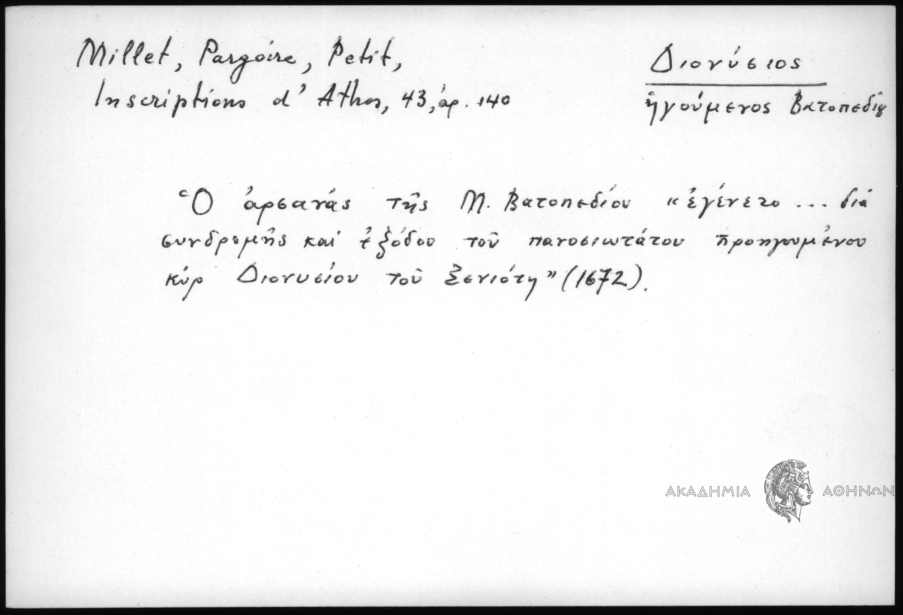 Millet, Pargoire, Petit,
Inscriptions d' Athos, 43, ἀρ. 140
Διονύσιος
ἡγούμενος Βατοπεδίου
Ὁ ἀρσανάς τῆς Μ. Βατοπεδίου "ἐγένετο ... διά
συνδρομῆς καί ἐξόδου τοῦ πανοσιωτάτου προηγουμένου
κύρ Διονυσίου τοῦ Ξενιότη" (1672).
ΑΚΑΔΗΜΙΑ ΑΘΗΝΩΝ